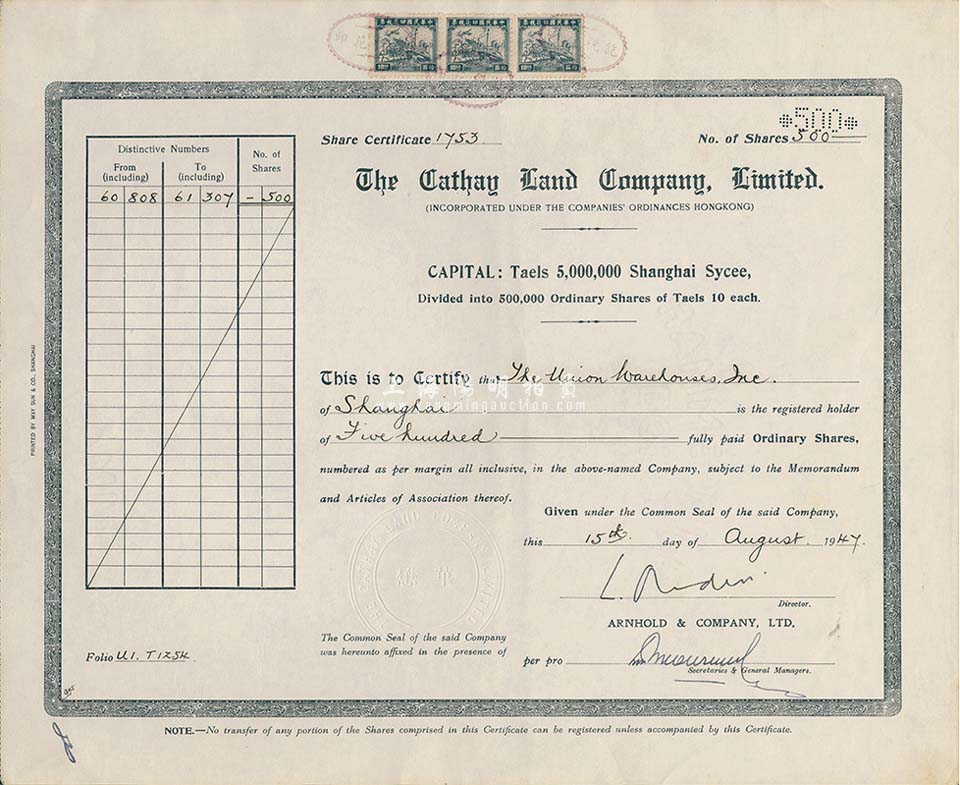 中華民國印花稅票
中華民國印花稅票
中華民國印花稅票
*500*
Share Certificate 1753
No. of Shares 500
Distinctive Numbers
No. of Shares
From (including)
To (including)
60 808 61 307 – 500
The Cathay Land Company, Limited.
(INCORPORATED UNDER THE COMPANIES' ORDINANCES HONGKONG)
CAPITAL: Taels 5,000,000 Shanghai Sycee,
Divided into 500,000 Ordinary Shares of Taels 10 each.
This is to Certify that The Union Warehouses, Inc.
上海陽明拍賣
www.yangmingauction.com
of Shanghai is the registered holder
of Five hundred fully paid Ordinary Shares,
numbered as per margin all inclusive, in the above-named Company, subject to the Memorandum
and Articles of Association thereof.
Given under the Common Seal of the said Company,
this 15th day of August 1947.
Director.
ARNHOLD & COMPANY, LTD.
The Common Seal of the said Company
was hereunto affixed in the presence of
per pro
Secretaries & General Managers.
Folio U1. T1254.
PRINTED BY WAY SUN & CO., SHANGHAI
NOTE.—No transfer of any portion of the Shares comprised in this Certificate can be registered unless accompanied by this Certificate.